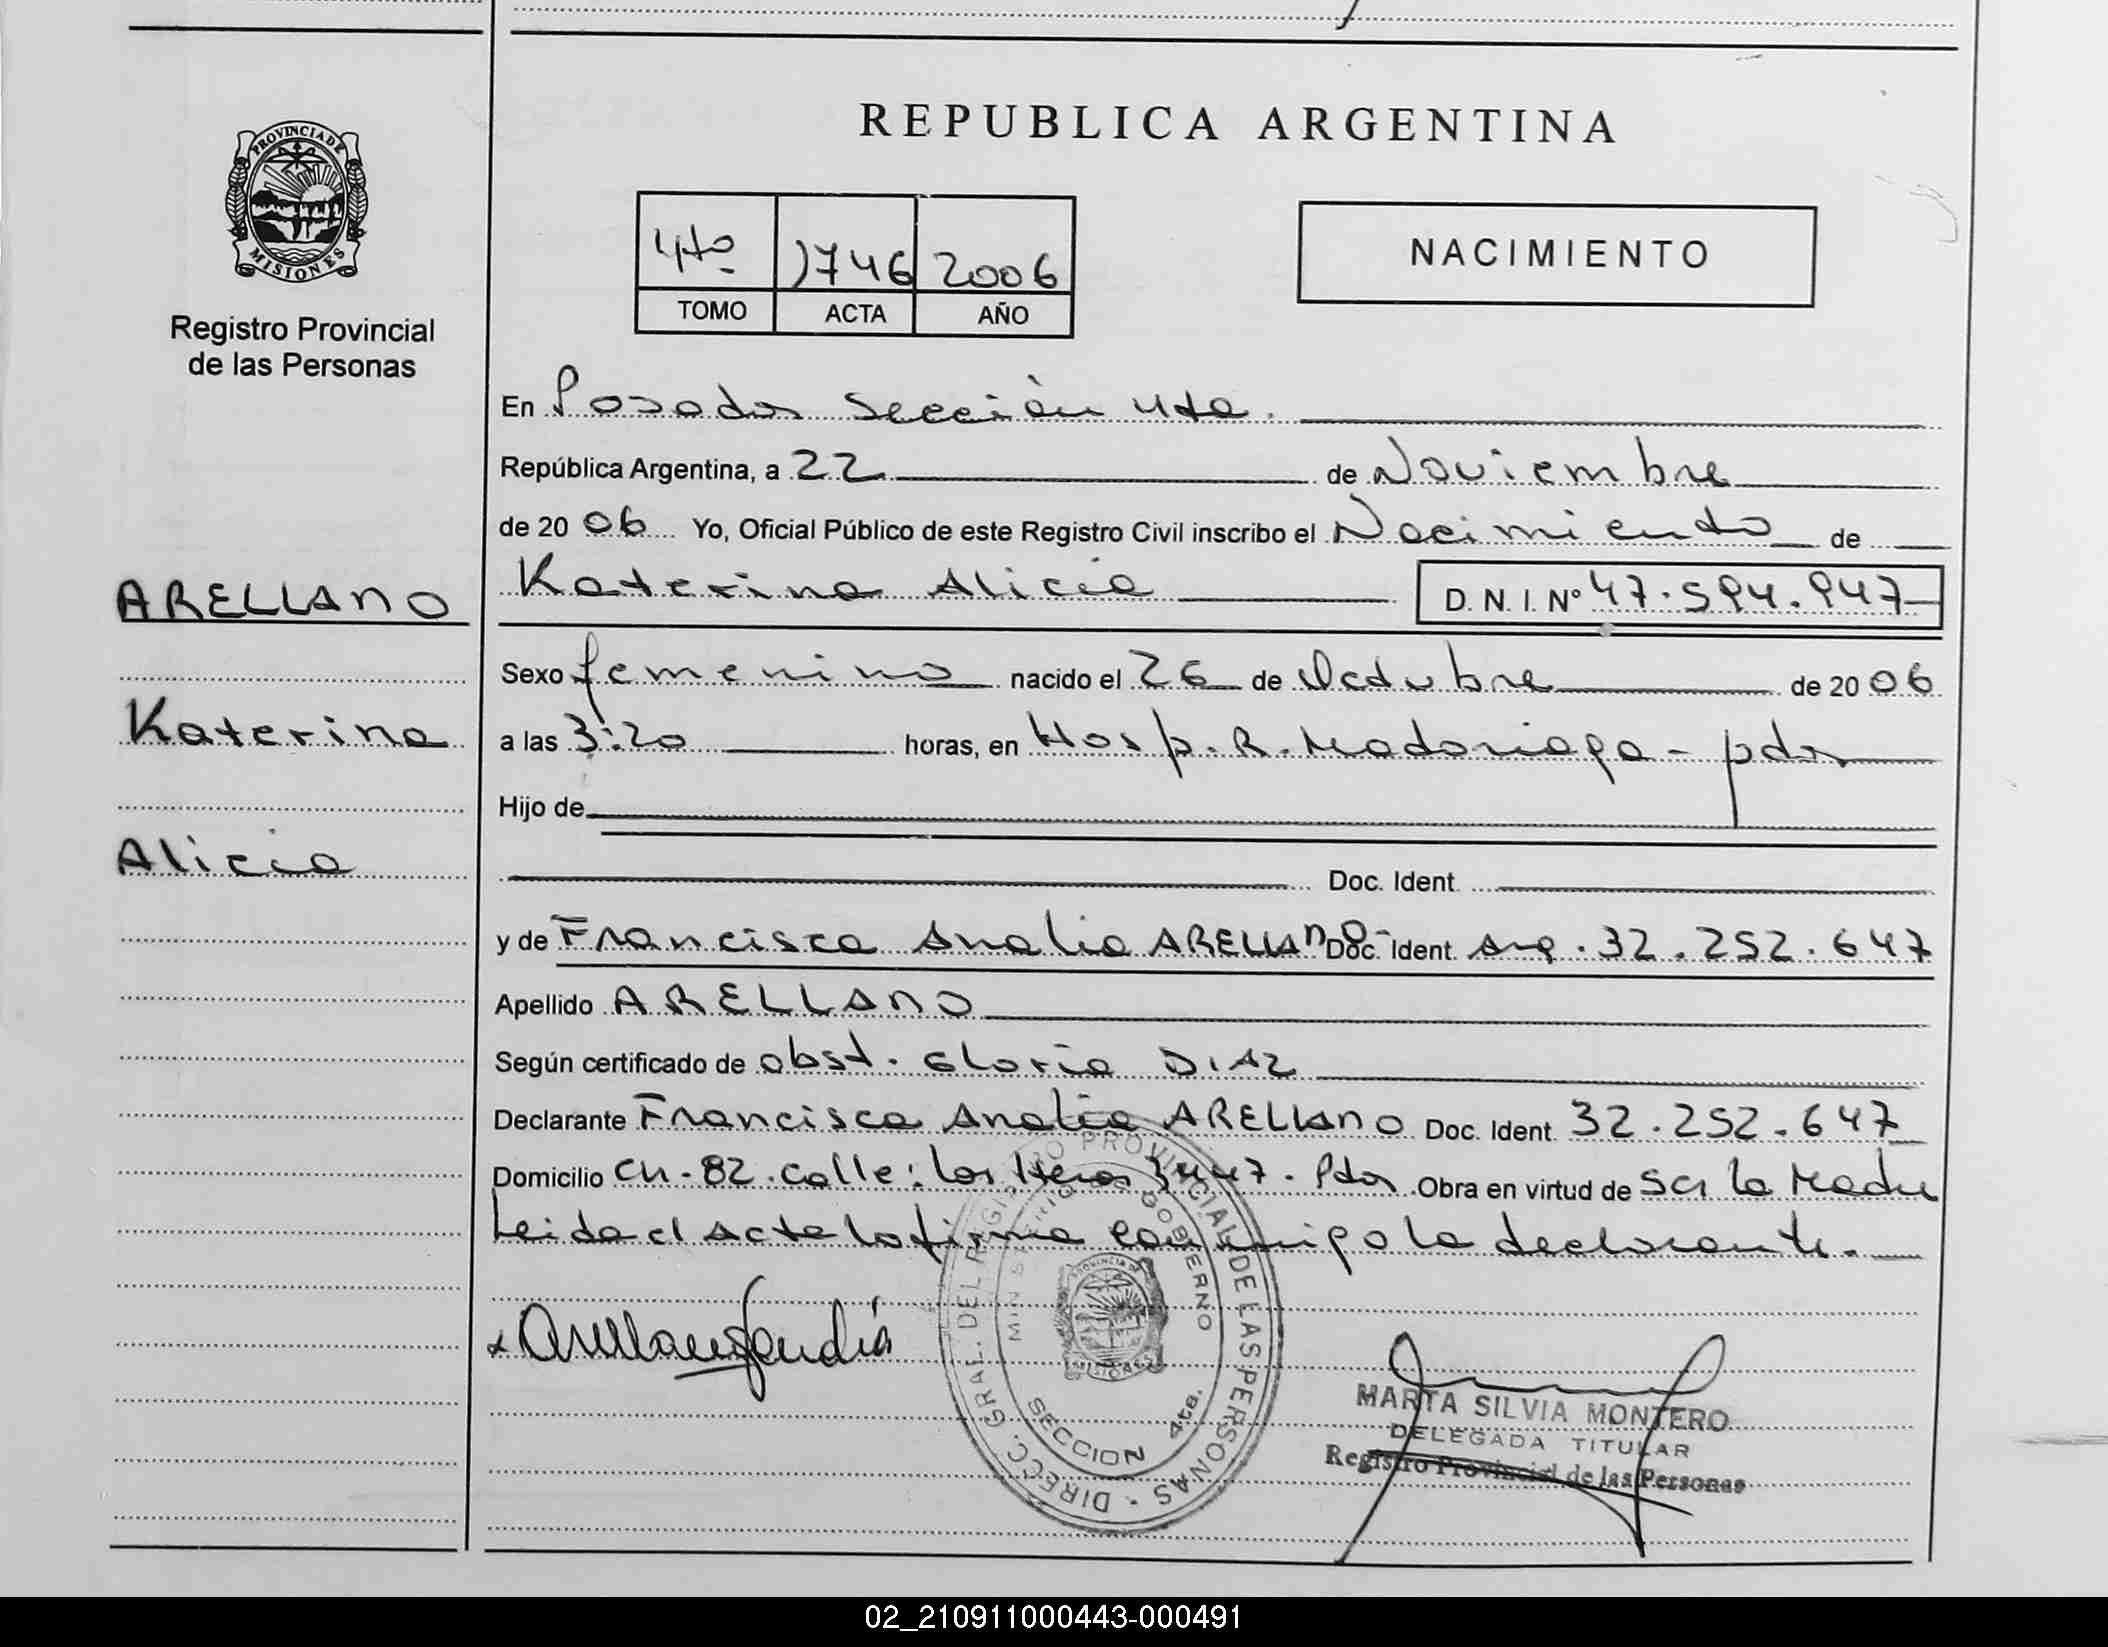 PROVINCIA DE
MISIONES
Registro Provincial
de las Personas
ARELLANO
Katerina
Alicia
REPUBLICA ARGENTINA
4to 1746 2006
TOMO ACTA AÑO
NACIMIENTO
En Posadas Sección 4ta.
República Argentina, a 22 de Noviembre
de 2006 Yo, Oficial Público de este Registro Civil inscribo el Nacimiento de
Katerina Alicia D. N. I. Nº 47.594.947
Sexo femenino nacido el 26 de Octubre de 2006
a las 3:20 horas, en Hosp. R. Madariaga - pdas
Hijo de
Doc. Ident.
y de Francisca Analia ARELLANO- Doc. Ident. Arg. 32.252.647
Apellido ARELLANO
Según certificado de obst. Gloria DIAZ
Declarante Francisca Analia ARELLANO Doc. Ident. 32.252.647
Domicilio CH-82. calle: Los 3447. Pdas Obra en virtud de ser la Madre
Leida el Acta la firma conmigo la declarante.
DIRECC. GRAL. DEL REGISTRO PROVINCIAL DE LAS PERSONAS
MINISTERIO DE GOBIERNO
PROVINCIA DE
MISIONES
SECCION 4ta.
MARTA SILVIA MONTERO
DELEGADA TITULAR
Registro Provincial de las Personas
02_210911000443-000491